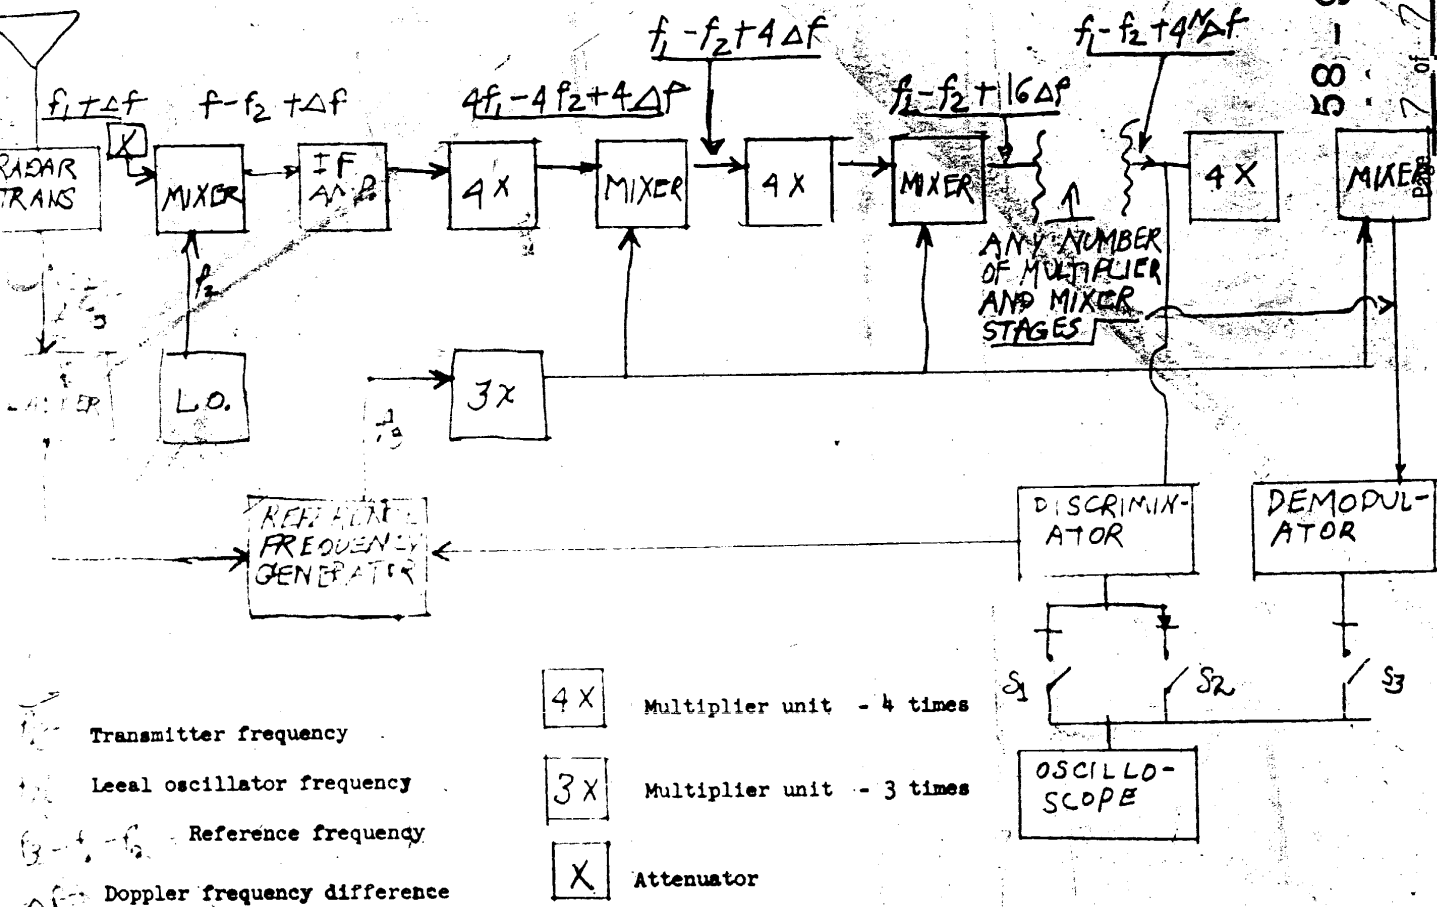 f₁-f₂+4Δf
f₁-f₂+4ᴺΔf
58-
7 of 7
Page
f₁+Δf
f-f₂+Δf
4f₁-4f₂+4Δf
f₁-f₂+16Δf
X
RADAR
TRANS
MIXER
IF
AMP.
4X
MIXER
4X
MIXER
4X
MIXER
ANY NUMBER
OF MULTIPLIER
AND MIXER
STAGES
f₂
L.O.
3X
f₃
REFERENCE
FREQUENCY
GENERATOR
DISCRIMIN-
ATOR
DEMODUL-
ATOR
S1
S2
S3
OSCILLO-
SCOPE
Transmitter frequency
Leeal oscillator frequency
f₃-f₁-f₂ Reference frequency
Δf- Doppler frequency difference
4X Multiplier unit - 4 times
3X Multiplier unit - 3 times
X Attenuator